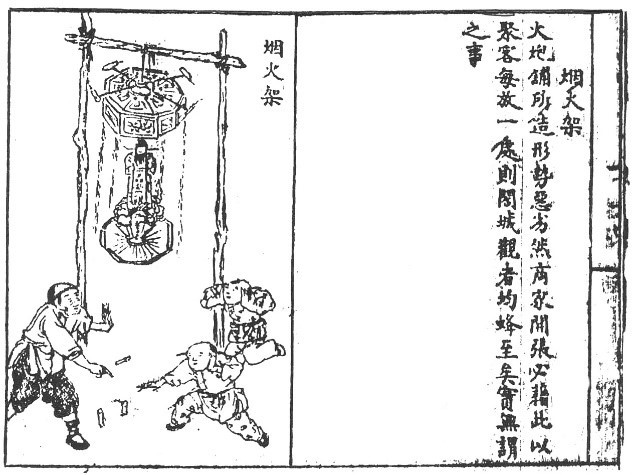 烟火架
火炮鋪所造形勢惡劣然商家開張必藉此以
聚客每放一處則閤城觀者均蜂至矣實無謂
之事
烟火架